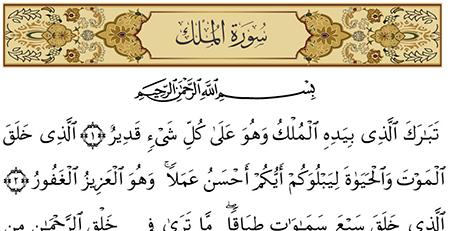 سُورَةُ الْمُلْكِ
بِسْمِ اللَّهِ الرَّحْمَٰنِ الرَّحِيمِ
تَبَارَكَ الَّذِي بِيَدِهِ الْمُلْكُ وَهُوَ عَلَىٰ كُلِّ شَيْءٍ قَدِيرٌ ﴿١﴾ الَّذِي خَلَقَ
الْمَوْتَ وَالْحَيَاةَ لِيَبْلُوَكُمْ أَيُّكُمْ أَحْسَنُ عَمَلًا ۚ وَهُوَ الْعَزِيزُ الْغَفُورُ ﴿٢﴾
الَّذِي خَلَقَ سَبْعَ سَمَاوَاتٍ طِبَاقًا ۖ مَّا تَرَىٰ فِي خَلْقِ الرَّحْمَٰنِ مِن